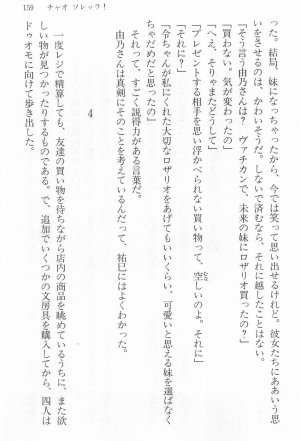 159　チャオ ソレッラ！
た。結局、妹になっちゃったから、今では笑って思い出せるけれど。彼女たちにああいう思
いをさせるのは、かわいそうだ。しないで済むなら、それに越したことはない。
「そう言う由乃さんは？　ヴァチカンで、未来の妹にロザリオ買ったの？」
「買わない。気が変わったの」
「へえ、そりゃまたどうして」
「プレゼントする相手を思い浮かべられない買い物って、空しいのよ。それに」
「それに？」
「令ちゃんが私にくれた大切なロザリオをあげてもいいくらい、可愛いと思える妹を選ばなく
ちゃだめだと思ったの」
それって、すごく説得力がある言葉だ。
由乃さんは真剣にそのことを考えているんだって、祐巳にはよくわかった。
4
一度レジで精算しても、友達の買い物を待ちながら店内の商品を眺めているうちに、また欲
しい物が見つかったりするものである。で、追加でいくつかの文房具を購入してから、四人は
ドゥオモに向けて歩き出した。